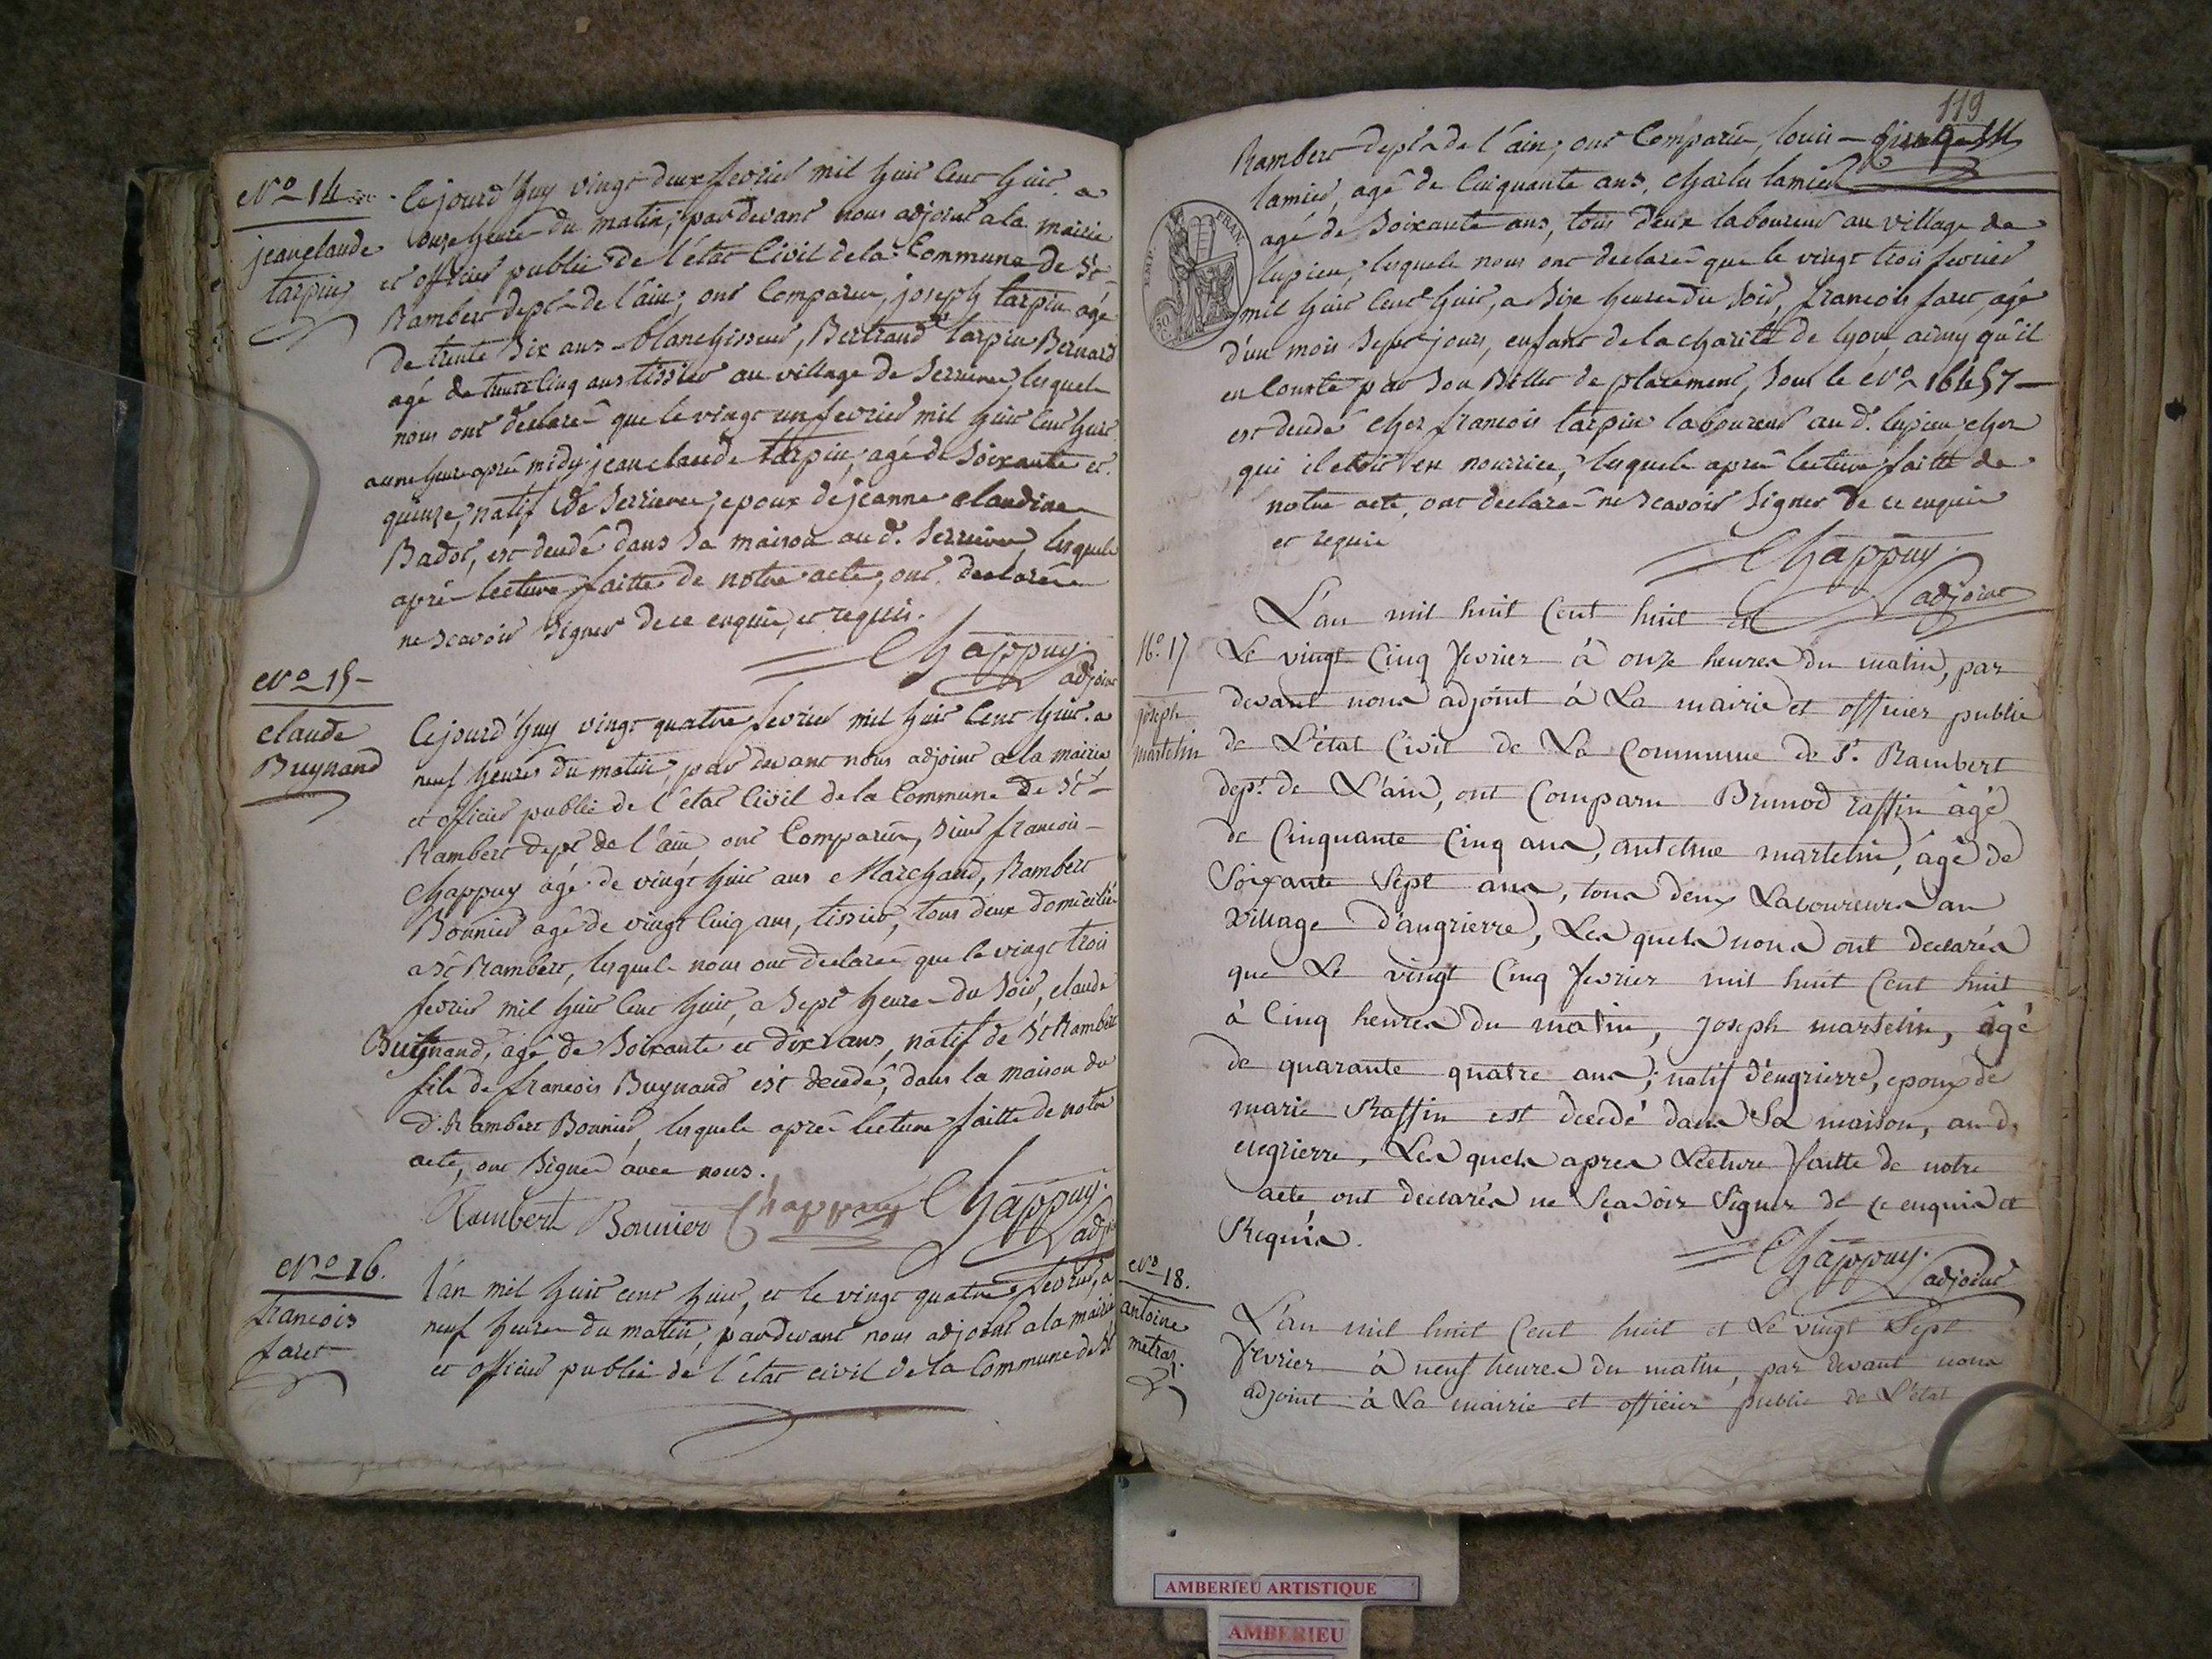 No 14
jean claude
tarpin
Cejourd'huy vingt deux fevrier mil huit cent huit a
onze heure du matin, pardevant nous adjoint a la mairie
et officier public de l'état Civil de la Commune de St
Rambert dept de l'ain, ont Comparu, joseph tarpin agé
de trente six ans blanchisseur, Bertrand tarpin Bernard
agé de trente Cinq ans tissier au village de Serrieres, lesquels
nous ont declaré que le vingt un fevrier mil huit Cent huit
a une heure aprés midy jean claude tarpin, agé de soixante et
quinze, natif de Serrieres, epoux de jeanne claudine
Badot, est decedé dans sa maison au d. Serrieres, lesquels
aprés lecture faitte de notre acte, ont declarés
ne scavoir signer de ce enquis, et requis.
Chappuy
adjoint
No 15
claude
Buynand
Cejourd'huy vingt quatre fevrier mil huit Cent huit a
neuf heures du matin, par devant nous adjoint a la mairie
et officier public de l'état Civil de la Commune de St
Rambert dept de l'ain ont Comparus, sieur francois
Chappuy agé de vingt huit ans Marchand, Rambert
Bonnier agé de vingt Cinq ans, tissier, tous deux domicilié
a St Rambert, lesquels nous ont declaré que le vingt trois
fevrier mil huit Cent huit, a sept heures du soir, claude
Buynand, agé de soixante et dix ans, natif de St Rambert
fils de francois Buynand est decedé, dans la maison du
d. Rambert Bonnier, lesquels aprés lecture faitte de notre
acte, ont signé avec nous.
Rambert Bonnier Chappuy Chappuy
adj
No 16.
francois
faret
L'an mil huit cent huit, et le vingt quatre fevrier, a
neuf heures du matin, pardevant nous adjoint a la mairie
et officier public de l'état civil de la Commune de St
119
Rambert dept de l'ain, ont Comparu, louis
lamier, agé de Cinquante ans, charles lamier
agé de soixante ans, tous deux laboureur au village de
lupieu, lesquels nous ont declaré que le vingt trois fevrier
mil huit Cent huit, a dix heures du soir, francois faret, agé
d'un mois sept jours, enfant de la charité de lyon, ainsy qu'il
en Conste par son Billet de placement, sous le No 16457
est decedé chez francois tarpin laboureur au d. lupieu chez
qui il etoit en nourrice, lesquels aprés lecture faitte de
notre acte, ont declaré ne scavoir signer de ce enquis
et requis
Chappuy
adjoint
EMP. FRAN.
50
No. 17
joseph
martelin
L'an mil huit Cent huit et
Le vingt Cinq fevrier à onze heures du matin, par
devant nous adjoint à La mairie et officier public
de L'état Civil de La Commune de St. Rambert
dept. de L'ain, ont Comparu Brunod raffin âgé
de Cinquante Cinq ans, antelme martelin, âgé de
Soixante Sept ans, tous deux Laboureurs au
village d'augrierre, Les quels nous ont declarés
que Le vingt Cinq fevrier mil huit Cent huit
à Cinq heures du matin, joseph martelin, âgé
de quarante quatre ans, natif d'eugrierre, epoux de
marie Raffin est decedé dans Sa maison, au d.
eugrierre, Les quels apres Lecture faitte de notre
acte, ont declarés ne Sçavoir Signer de ce enquis et
Requis.
Chappuy.
adjoint
No 18.
antoine
metras.
L'an mil huit Cent huit et Le vingt Sept
fevrier à neuf heures du matin, par devant nous
adjoint à La mairie et officier public de L'état
AMBERIEU ARTISTIQUE
AMBERIEU